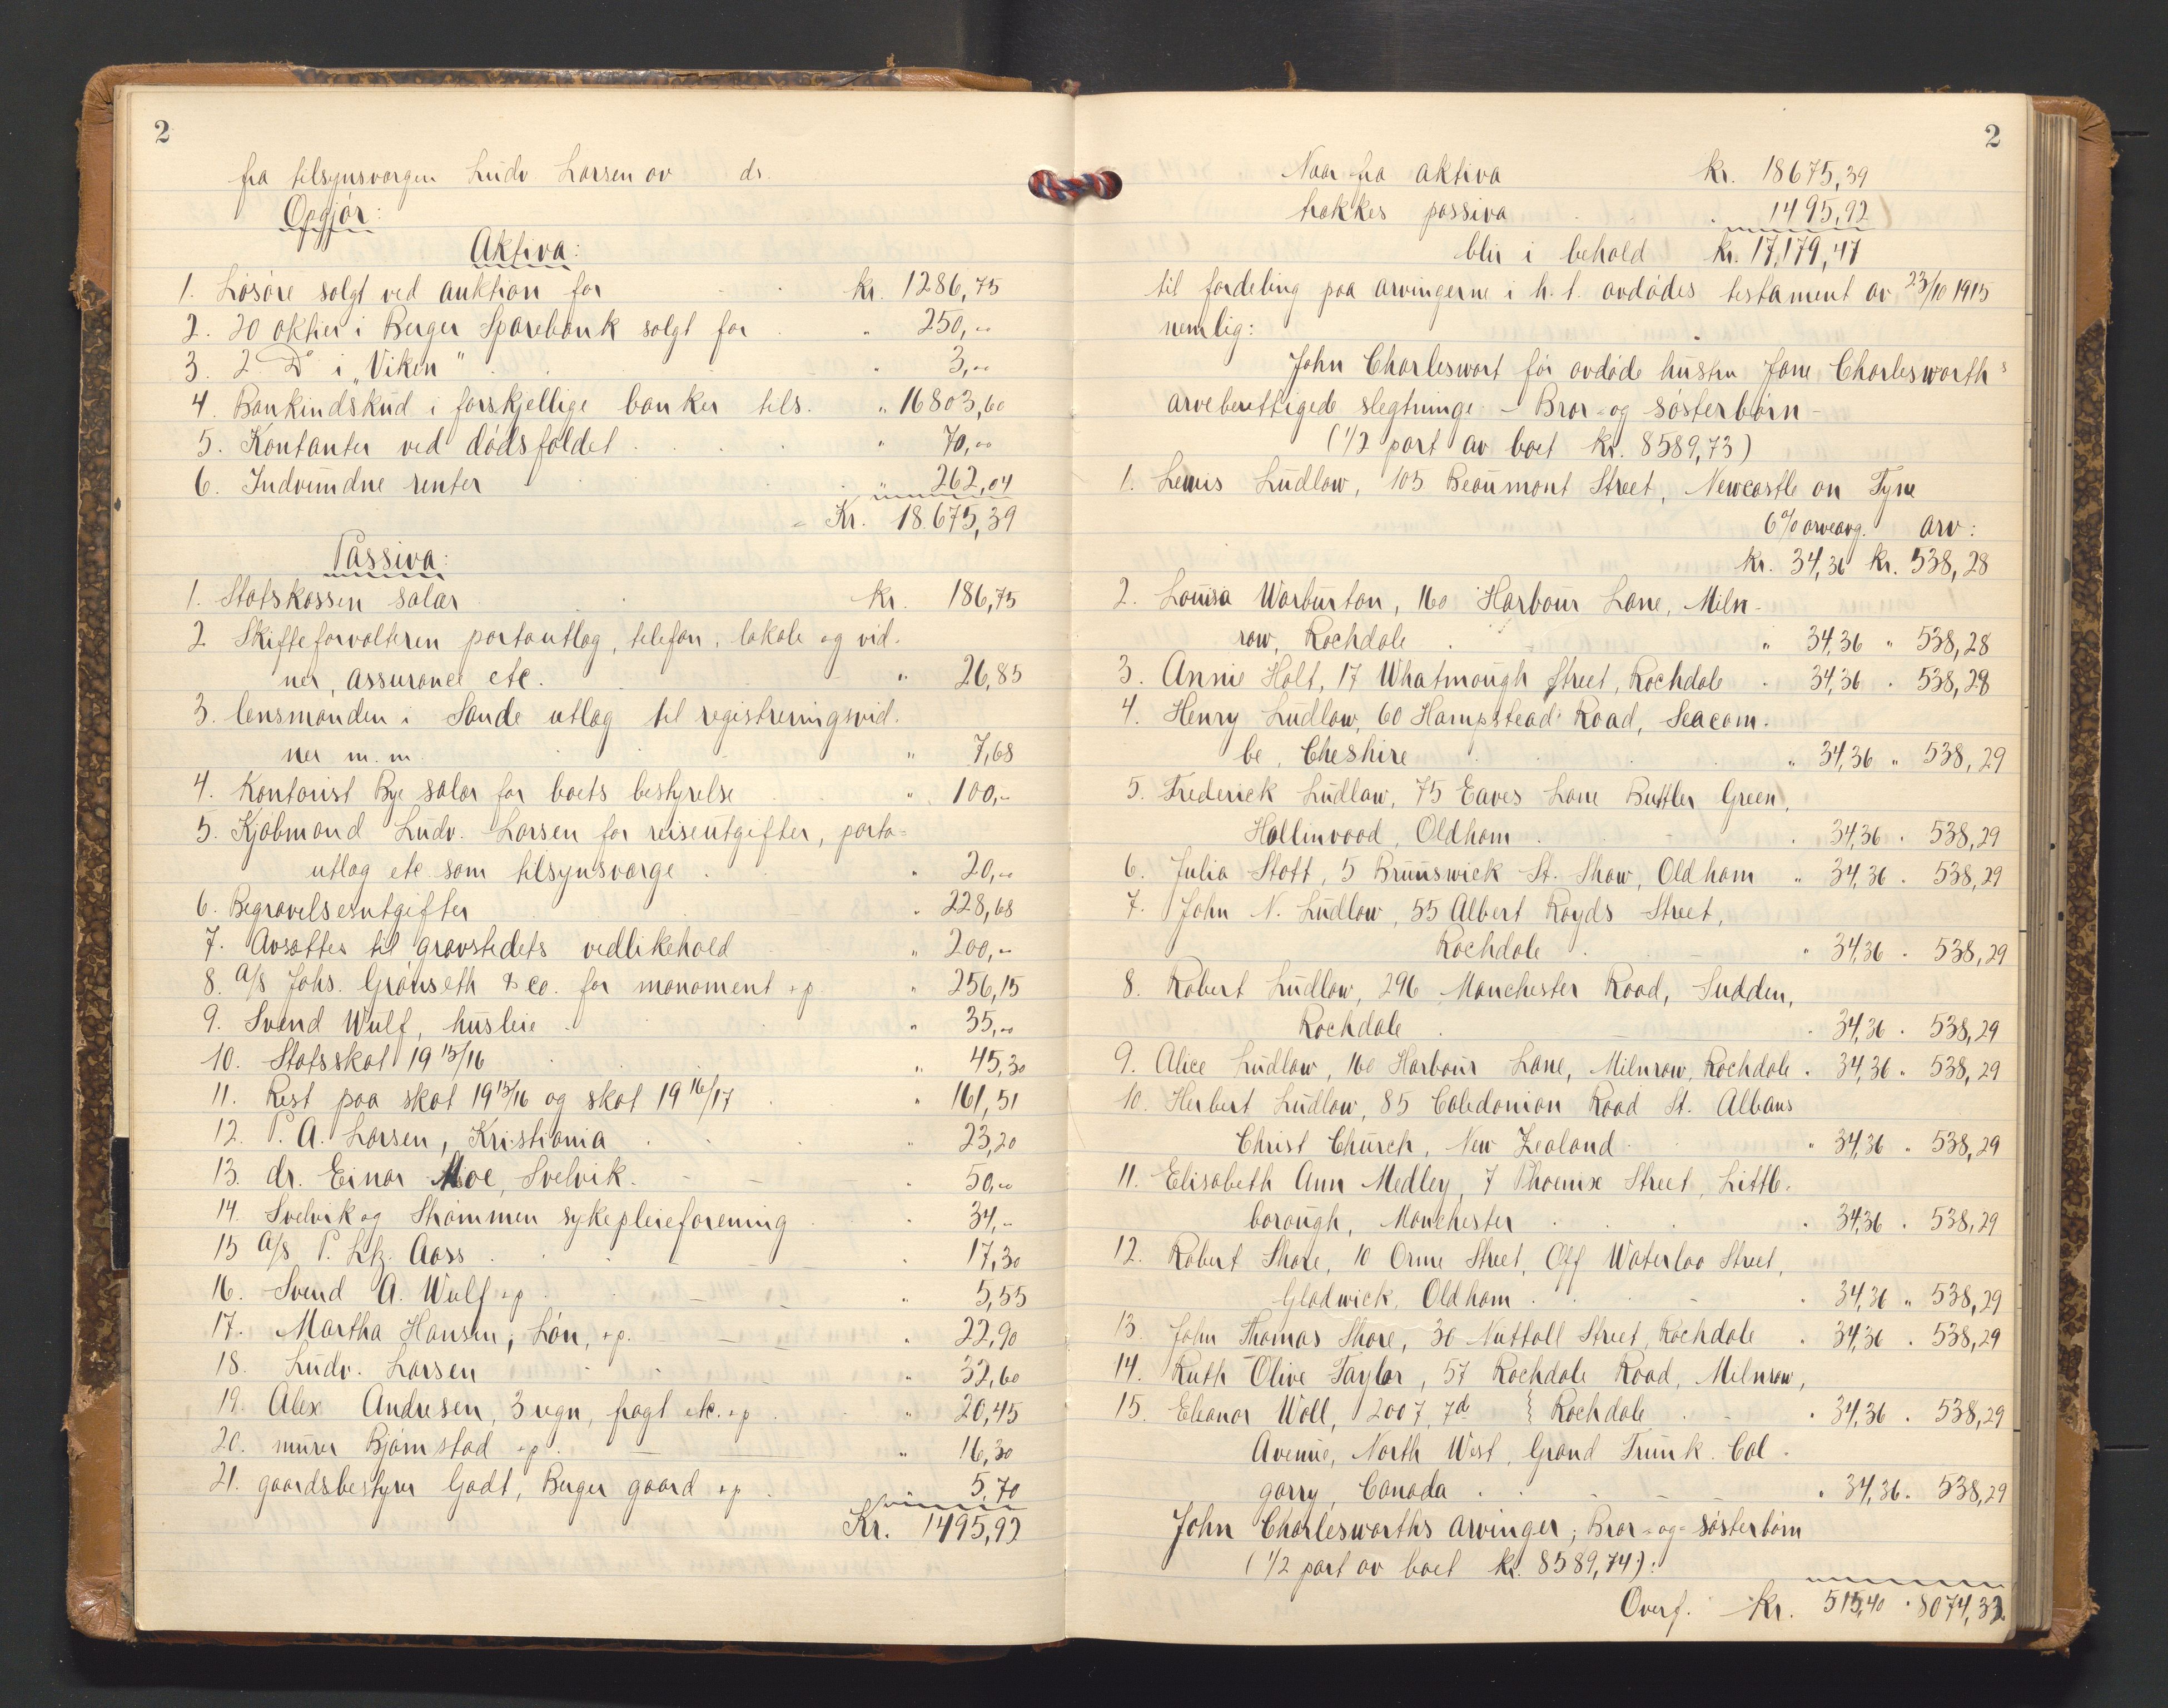 2
fra tilsynsvergen Ludv. Larsen av ds.
Opgjør:
Aktiva:
1. Løsøre solgt ved auktion for kr. 1286,75
2. 20 aktier i Berger Sparebank solgt for " 250,00
3. 2 Do i "Viken" " 3,00
4. Bankindskud i forskjellige banker tils. " 16803,60
5. Kontanter ved dødsfaldet " 70,00
6. Indvundne renter " 262,04
= Kr. 18675,39
Passiva:
1. Statskassen salær kr. 186,75
2. Skifteforvalteren portoutlæg, telefon, lokale og vid-
ner, assurance etc. " 26,85
3. lensmanden i Sande utlæg til registreringsvid-
ner m. m. " 7,68
4. Kontorist Bye salær for boets bestyrelse " 100,-
5. Kjøbmand Ludv. Larsen for reiseutgifter, porto=
utlæg etc som tilsynsværge " 20,00
6. Begravelsesutgifter " 228,68
7. Avsættes til gravstedets vedlikehold " 200,-
8. A/S Johs. Grønseth & co. for monoment +p. " 256,15
9. Svend Wulf, husleie " 35,00
10. Statsskat 1915/16 " 45,30
11. Rest paa skat 1915/16 og skat 1916/17 " 161,51
12. P. A. Larsen, Kristiania " 23,20
13. dr. Einar Moe, Svelvik. " 50,00
14. Svelvik og Strømmen sykepleieforening " 34,-
15 A/S P. Ltz. Aass " 17,30
16. Svend A. Wulf +p " 5,55
17. Martha Hansen, Løn, +p. " 22,90
18. Ludv. Larsen " 32,60
19. Alex Andresen, 3 regn, fragt etc. +p " 20,45
20. murer Bjørnstad +p. " 16,30
21. gaardsbestyrer Godt, Berger gaard +p 5,70
Kr. 1495,92
2
Naar fra aktiva kr. 18675,39
trækkes passiva " 1495,92
blir i behold kr. 17,179,47
til fordeling paa arvingerne i h. t. avdødes testament av 23/10 1915
nemlig:
John Charleswort før avdøde hustru Jane Charlesworth's
arveberettigede slegtninge - Bror- og søsterbørn -
(1/2 part av boet kr. 8589,73)
1. Lewis Ludlow, 103 Beaumont Street, Newcastle on Tyne
6% arveavg. arv:
kr. 34,36 kr. 538,28
2. Louisa Warburton, 160 Harbour Lane, Miln-
row, Rochdale " 34,36 " 538,28
3. Annie Holt, 17 Whatmough Street, Rochdale " 34,36 " 538,28
4. Henry Ludlow, 60 Hampstead Road, Seacom-
be, Cheshire " 34,36 " 538,29
5. Frederick Ludlow, 75 Eaves Lane Buttler Green,
Hollinvood, Oldham " 34,36 " 538,29
6. Julia Stott, 5 Brunswick St. Shaw, Oldham " 34,36 " 538,29
7. John N. Ludlow, 55 Albert Royds Street,
Rochdale " 34,36 " 538,29
8. Robert Ludlow, 296 Manchester Road, Sudden,
Rochdale " 34,36 " 538,29
9. Alice Ludlow, 160 Harbour Lane, Milnrow, Rochdale " 34,36 " 538,29
10. Herbert Ludlow, 85 Caledonian Road St. Albans
Christ Church, New Zealand " 34,36 " 538,29
11. Elisabeth Ann Medley, 7 Phoenix Street, Little-
borough, Manchester " 34,36 " 538,29
12. Robert Shore, 10 Orme Street, Off Waterloo Street,
Glodwick, Oldham " 34,36 " 538,29
13. John Thomas Shore, 30 Nuttall Street, Rochdale " 34,36 " 538,29
14. Ruth Olive Taylor, 57 Rochdale Road, Milnrow,
Rochdale " 34,36 " 538,29
15. Eleanor Woll, 2007, 7d
Avenue, North West, Grand Trunk. Cal-
garry, Canada " 34,36 " 538,29
John Charlesworths arvinger; Bror- og søsterbørn
(1/2 part av boet kr. 8589,74):
Overf. kr. 515,40 " 8074,33